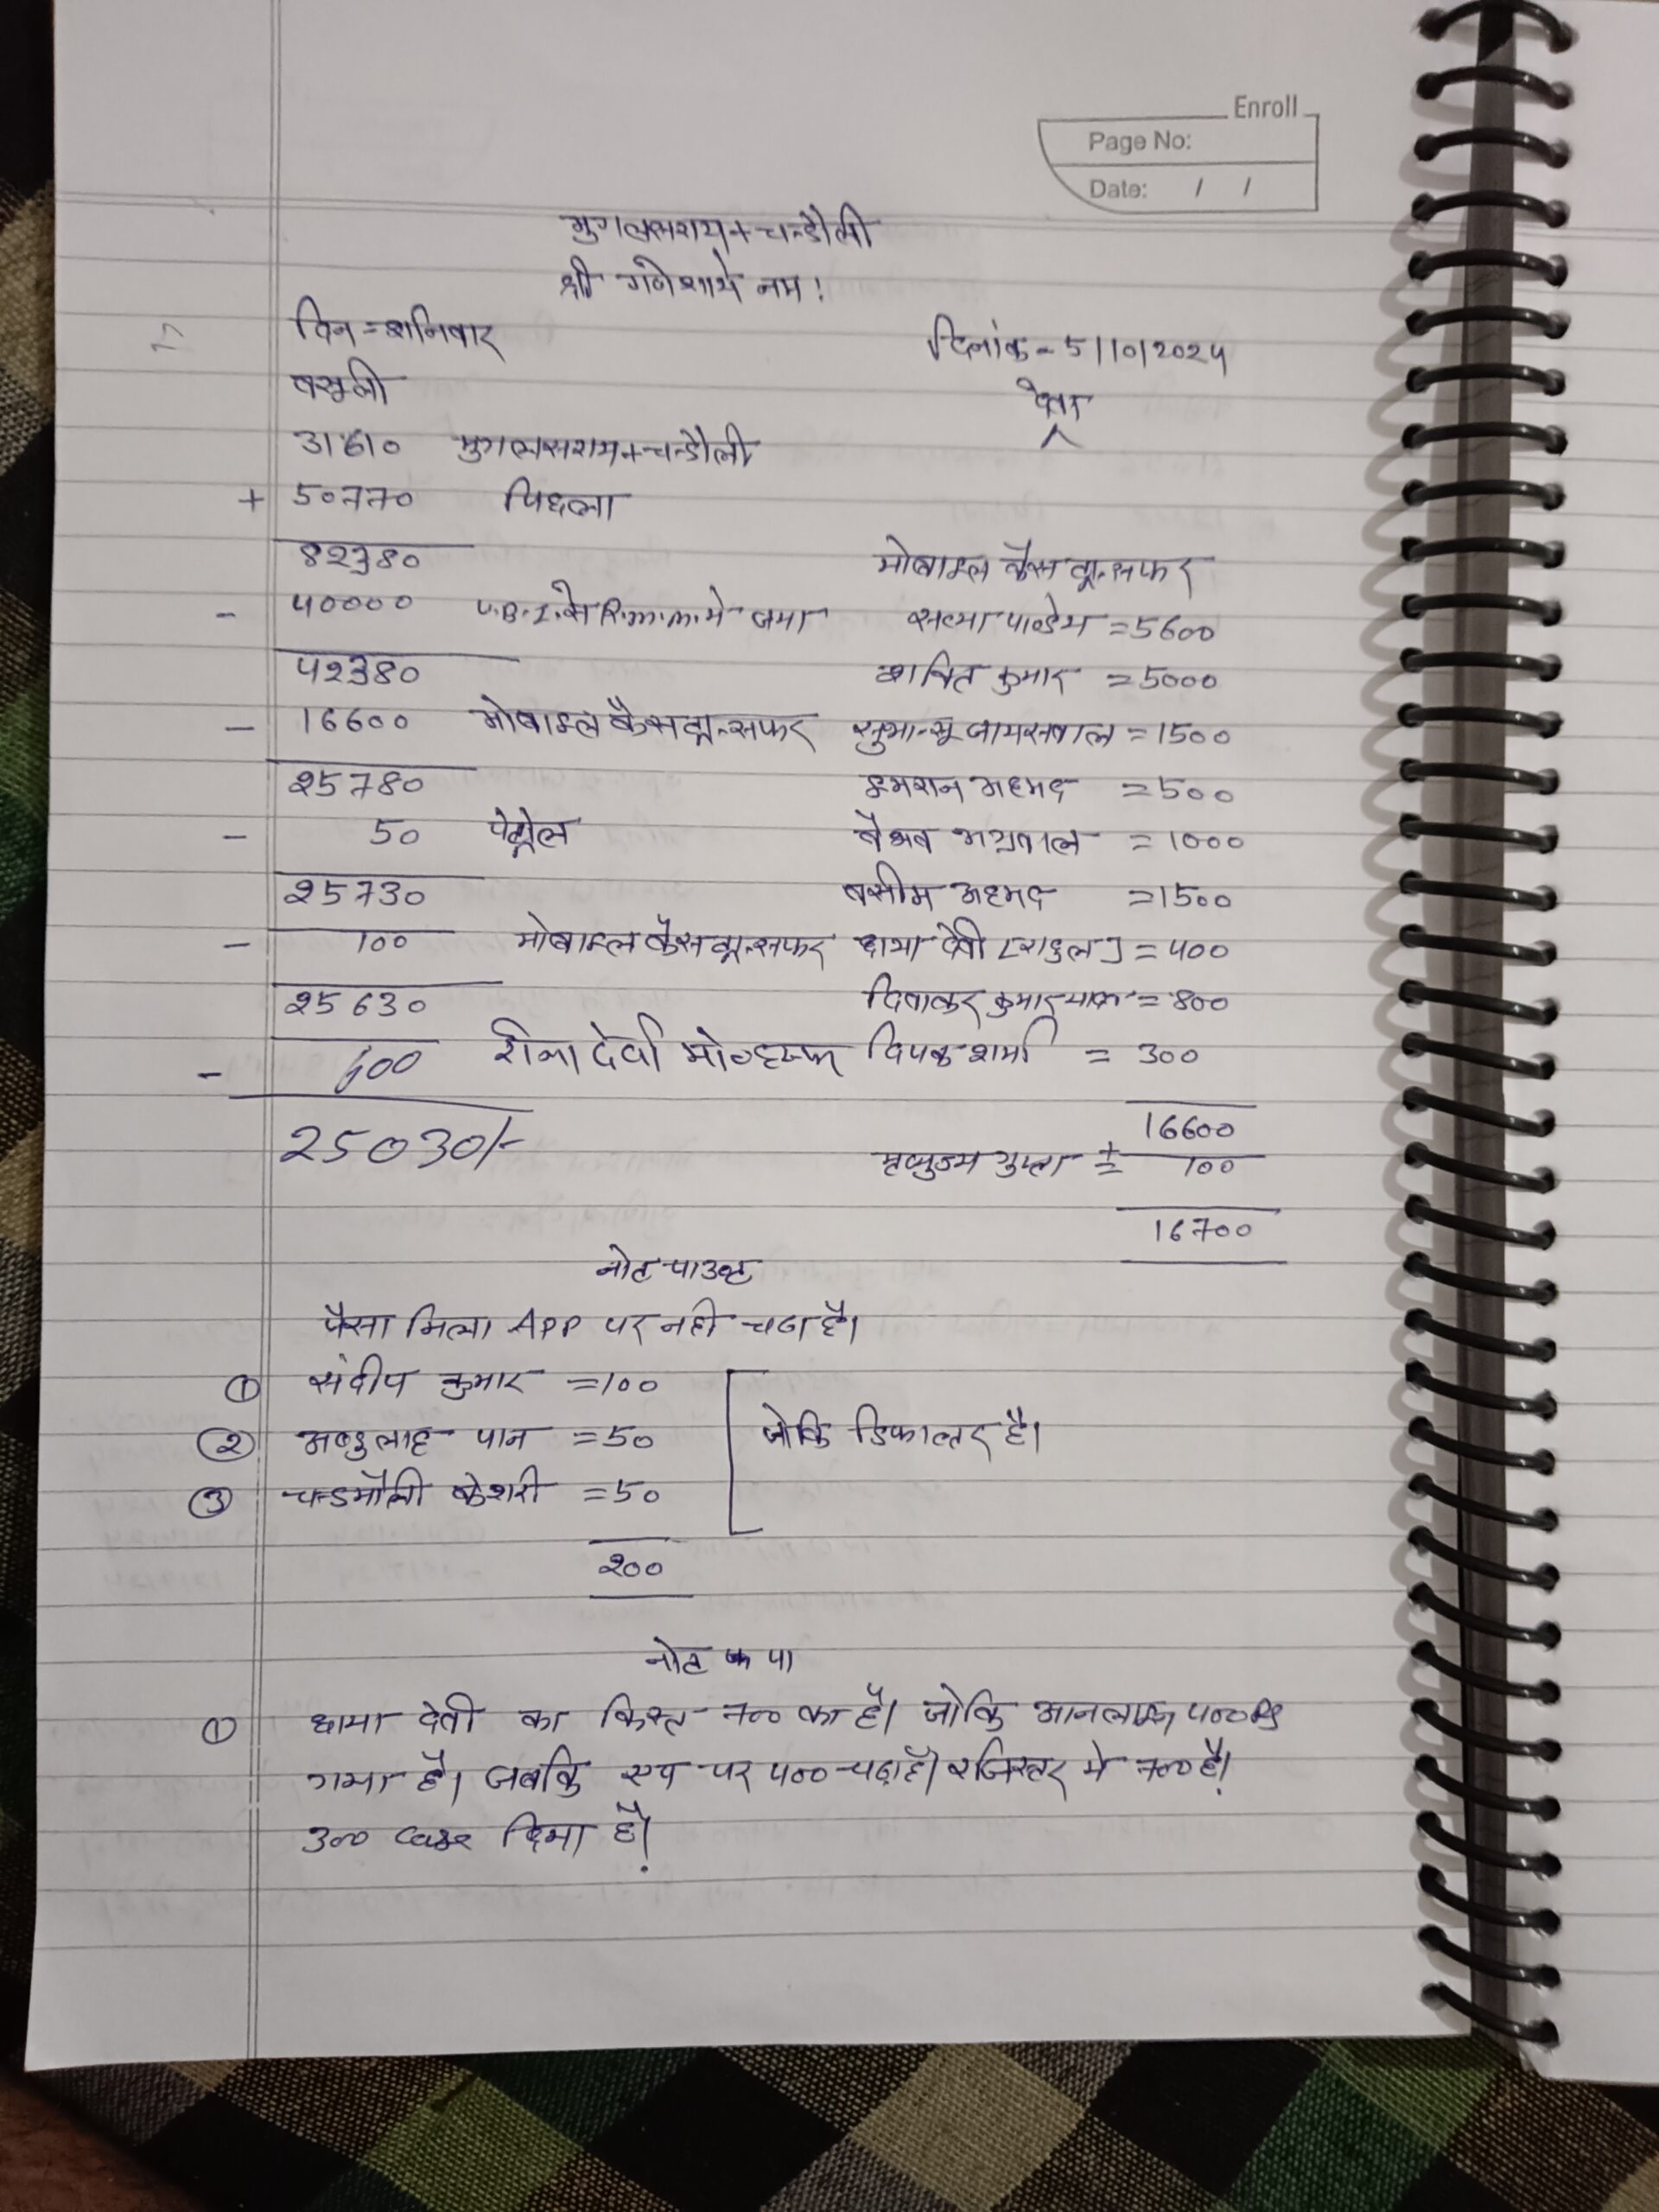 Enroll
Page No:
Date: / /
मुगलसराय+चन्डौली
श्री गणेशाये नम!
दिन = शनिवार दिनांक - 5/10/2024
वसूली
31610 मुगलसराय+चन्डौली
+ 50770 पिछला
82380 मोबाइल कैस ट्रान्सफर
- 40000 U.B.I. से R.m.m. मे जमा सत्या पाण्डेय = 5600
42380 शक्ति कुमार = 5000
- 16600 मोबाइल कैस ट्रान्सफर सुभान्सू जायसवाल = 1500
25780 इमरान अहमद = 500
- 50 पेट्रोल वैभव अग्रवाल = 1000
25730 वसीम अहमद = 1500
- 100 मोबाइल कैस ट्रान्सफर छाया देवी [राहुल] = 400
25630 दिवाकर कुमार = 800
- 600 रीना देवी दिपक शर्मा = 300
25030/- 16600
मृत्युंजय गुप्ता ± 100
16700
नोट पाउन्ट
पैसा मिला APP पर नही चढा है।
① संदीप कुमार = 100
② अब्दुलाह पान = 50 जोकि डिफाल्टर है।
③ चन्डमौली केशरी = 50
200
नोट पा
① छाया देवी का किस्त 700 का है। जोकि आनलाइन 400 RS
गया है। जबकि एप पर 400 चढ़ा है। रजिस्टर मे 700 है।
300 case दिया है।